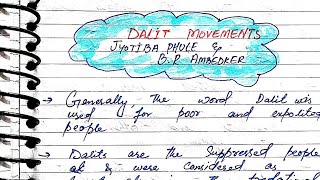 DALIT MOVEMENTS
JYOTIBA PHULE &
B.R AMBEDKER
→ Generally, The word Dalit wis
used for poor and expolited
people
→ Dalits are the Suppressed people
at & were considered as